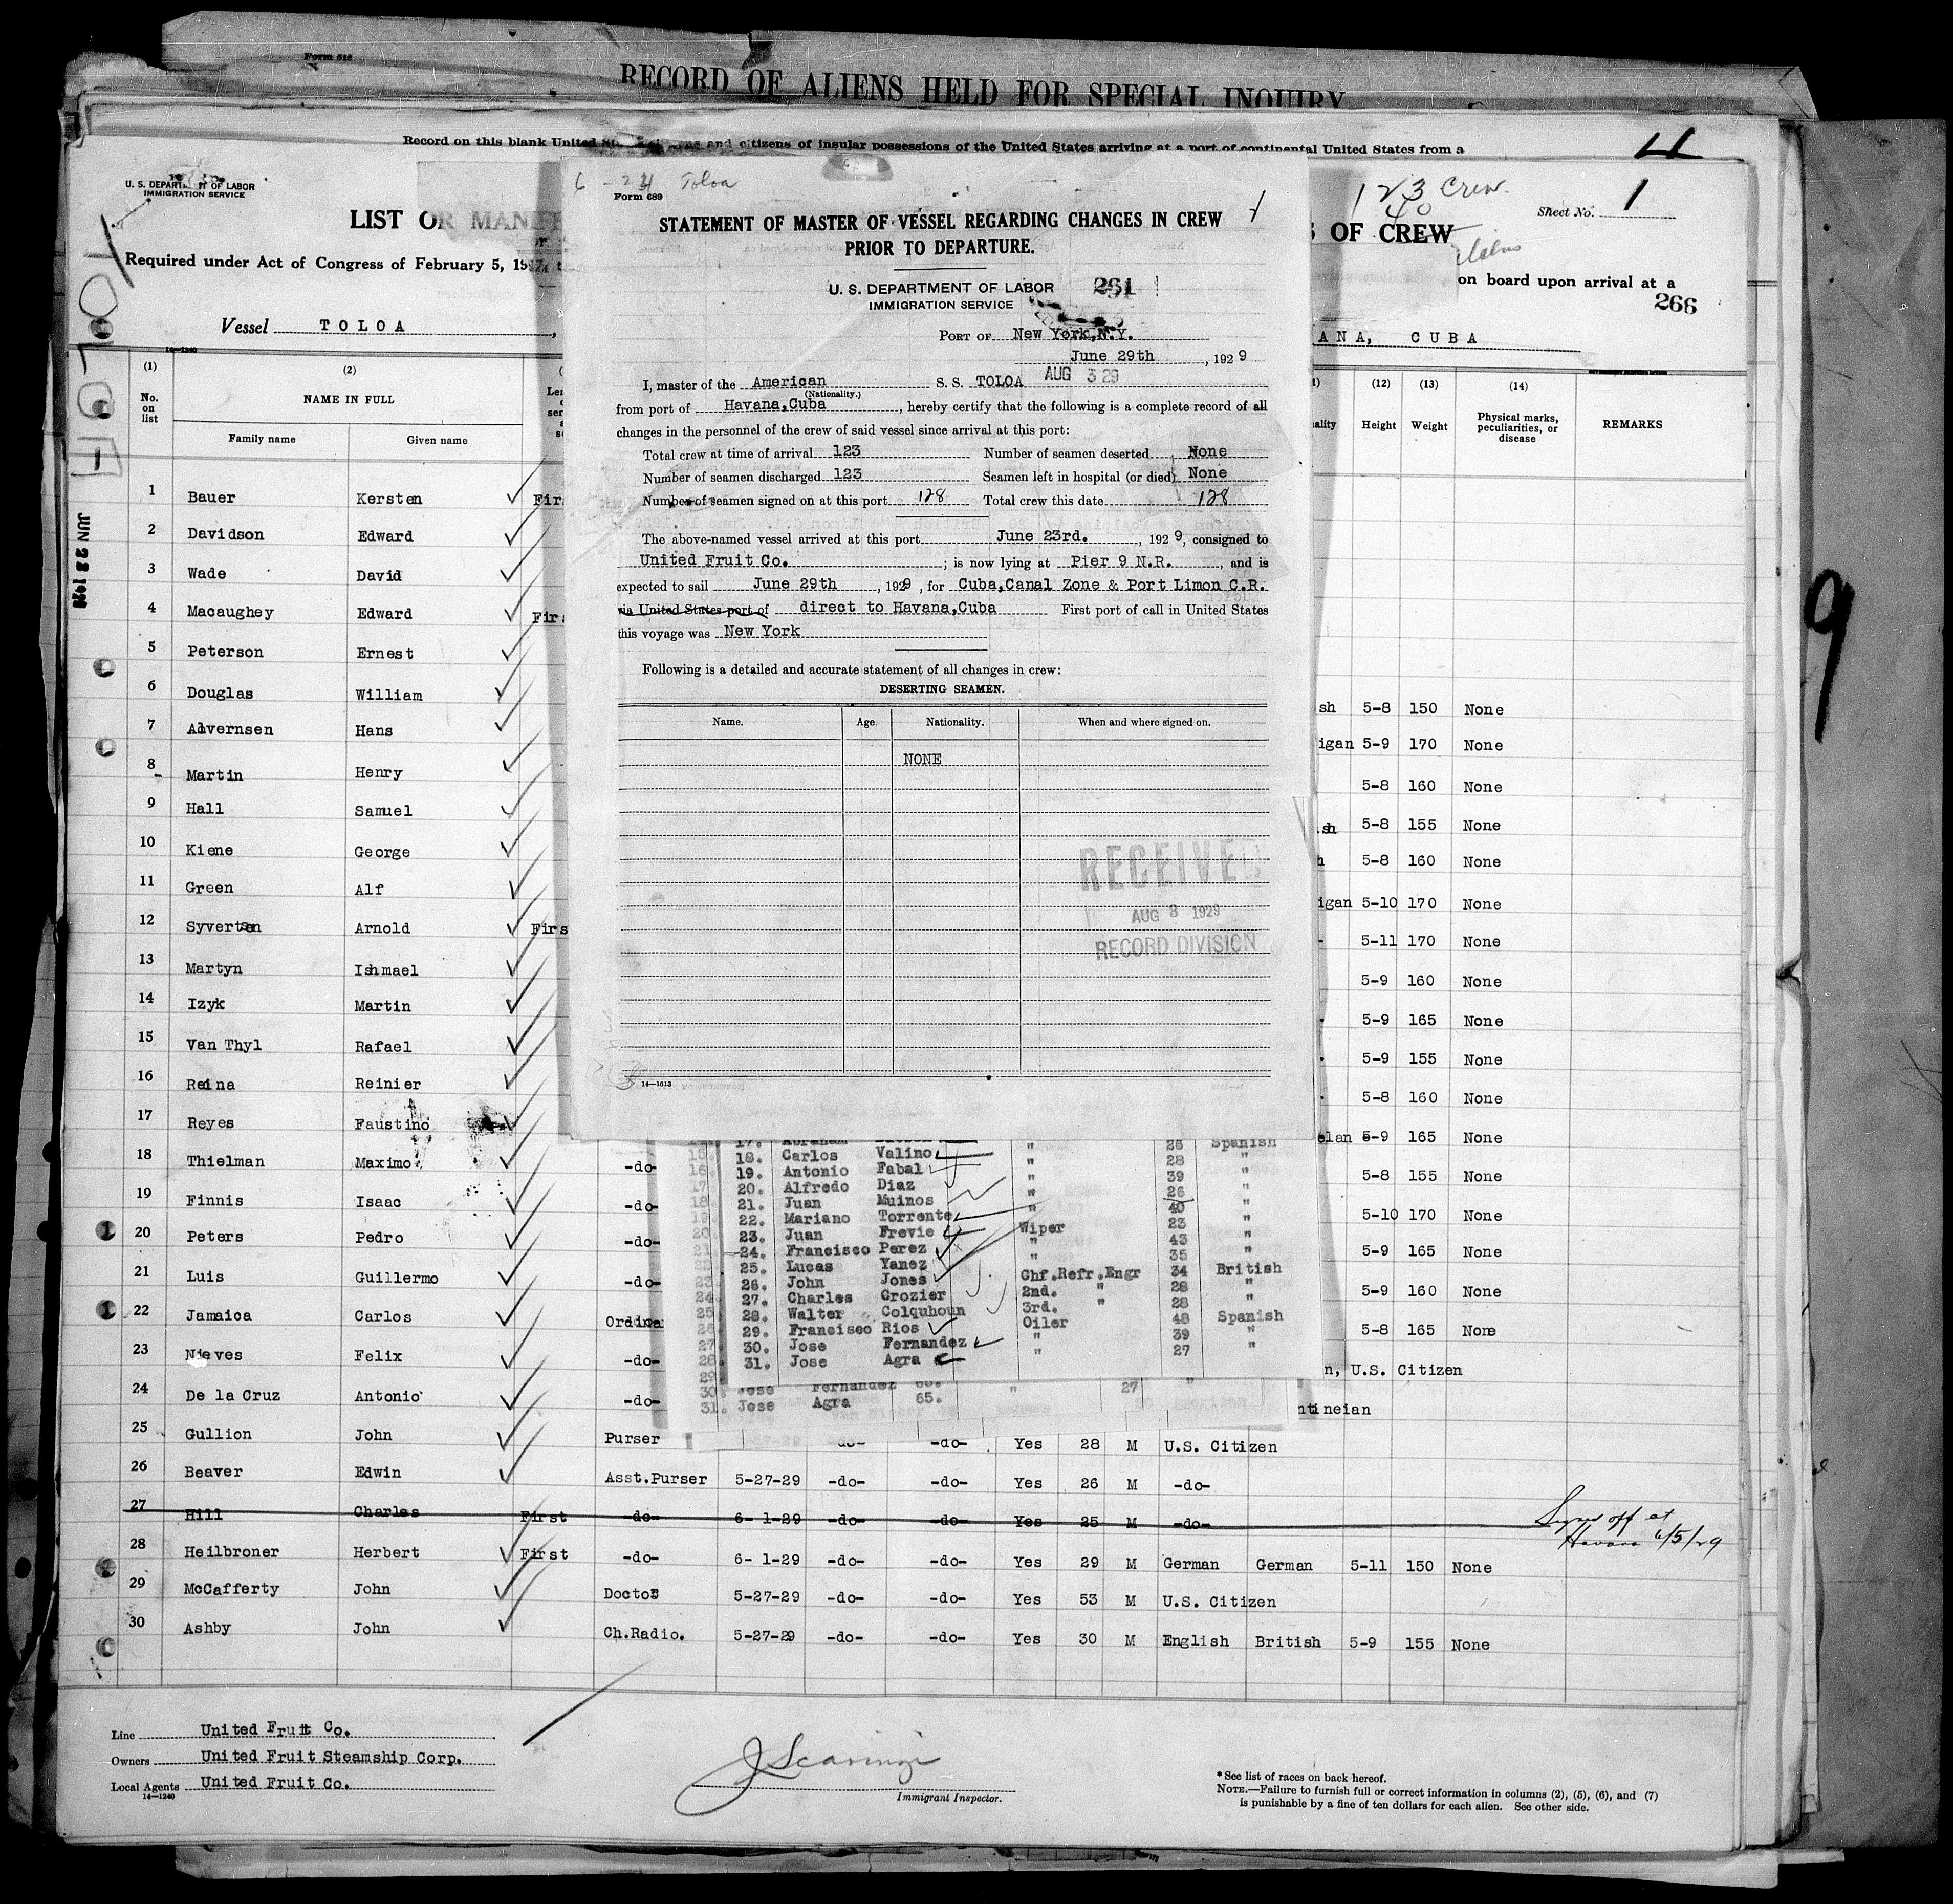 Form 518
RECORD OF ALIENS HELD FOR SPECIAL INQUIRY
Record on this blank United and citizens of insular possessions of the United States arriving at a port of continental United States from a
4
U. S. DEPARTMENT OF LABOR
IMMIGRATION SERVICE
LIST OR MANIF
Required under Act of Congress of February 5, 1917,
Vessel TOLOA
TOLOA
JUN 23 1929
14—1240
S OF CREW
123 Crew
40
Aliens
Sheet No. 1
on board upon arrival at a
266
ANA, CUBA
9
6-24 Toloa
Form 689
STATEMENT OF MASTER OF VESSEL REGARDING CHANGES IN CREW
PRIOR TO DEPARTURE.
U. S. DEPARTMENT OF LABOR 261
IMMIGRATION SERVICE
PORT OF New York,N.Y.
June 29th, 1929
AUG 3 29
I, master of the American S. S. TOLOA
(Nationality.)
from port of Havana,Cuba, hereby certify that the following is a complete record of all
changes in the personnel of the crew of said vessel since arrival at this port:
Total crew at time of arrival 123 Number of seamen deserted None
Number of seamen discharged 123 Seamen left in hospital (or died) None
Number of seamen signed on at this port 128 Total crew this date 128
The above-named vessel arrived at this port June 23rd., 1929, consigned to
United Fruit Co.; is now lying at Pier 9 N.R., and is
expected to sail June 29th, 1929, for Cuba,Canal Zone & Port Limon C.R.
via United States port of direct to Havana,Cuba First port of call in United States
this voyage was New York
Following is a detailed and accurate statement of all changes in crew:
DESERTING SEAMEN.
Name. Age. Nationality. When and where signed on.
NONE
RECEIVED
AUG 3 1929
RECORD DIVISION
14—1613
(1) (2) (12) (13) (14)
No. on list NAME IN FULL Height Weight Physical marks, peculiarities, or disease REMARKS
Family name Given name
1 Bauer Kersten Firs
2 Davidson Edward
3 Wade David
4 Macaughey Edward Firs
5 Peterson Ernest
6 Douglas William sh 5-8 150 None
7 Advernsen Hans igan 5-9 170 None
8 Martin Henry 5-8 160 None
9 Hall Samuel sh 5-8 155 None
10 Kiene George h 5-8 160 None
11 Green Alf igan 5-10 170 None
12 Syvertsen Arnold Firs 5-11 170 None
13 Martyn Ishmael 5-9 160 None
14 Izyk Martin 5-9 165 None
15 Van Thyl Rafael 5-9 155 None
16 Reina Reinier 5-8 160 None
17 Reyes Faustino elan 5-9 165 None
18 Thielman Maximo -do- 5-8 155 None
19 Finnis Isaac -do- 5-10 170 None
20 Peters Pedro -do- 5-9 165 None
21 Luis Guillermo -do- 5-9 160 None
22 Jamaica Carlos Ordina 5-8 165 None
23 Nieves Felix -do- n, U.S. Citizen
24 De la Cruz Antonio -do- ntineian
25 Gullion John Purser -do- -do- Yes 28 M U.S. Citizen
26 Beaver Edwin Asst.Purser 5-27-29 -do- -do- Yes 26 M -do-
27 Hill Charles First -do- 6- 1-29 -do- -do- Yes 25 M -do- Signed off at Havana 6/5/29
28 Heilbroner Herbert First -do- 6- 1-29 -do- -do- Yes 29 M German German 5-11 150 None
29 McCafferty John Doctor 5-27-29 -do- -do- Yes 53 M U.S. Citizen
30 Ashby John Ch.Radio. 5-27-29 -do- -do- Yes 30 M English British 5-9 155 None
17. Abraham " 26 Spanish
18. Carlos Valino " 28 "
19. Antonio Fabal " 39 "
20. Alfredo Diaz " 26 "
21. Juan Muinos " 40 "
22. Mariano Torrente " 23 "
23. Juan Frevie Wiper 43 "
24. Francisco Perez " 35 "
25. Lucas Yanez "
26. John Jones Chf.Refr.Engr 34 British
27. Charles Crozier 2nd. " 28 "
28. Walter Colquhoun 3rd. " 28 "
29. Francisco Rios Oiler 48 Spanish
30. Jose Fernandez " 39 "
31. Jose Agra " 27 "
30. Jose Fernandez " 27 "
31. Jose Agra 65.
Line United Fruit Co.
Owners United Fruit Steamship Corp.
Local Agents United Fruit Co.
14—1240
Immigrant Inspector.
*See list of races on back hereof.
NOTE.—Failure to furnish full or correct information in columns (2), (5), (6), and (7)
is punishable by a fine of ten dollars for each alien. See other side.